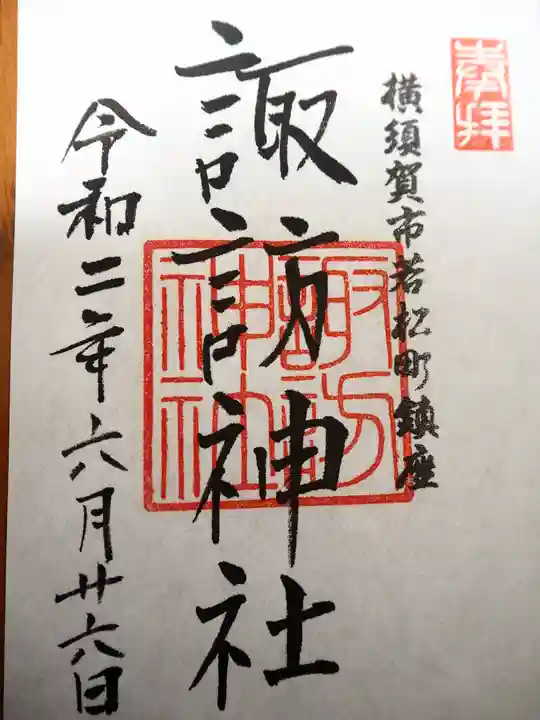 奉拝
横須賀市若松町鎮座
諏訪神社
諏訪神社
令和二年六月廿六日